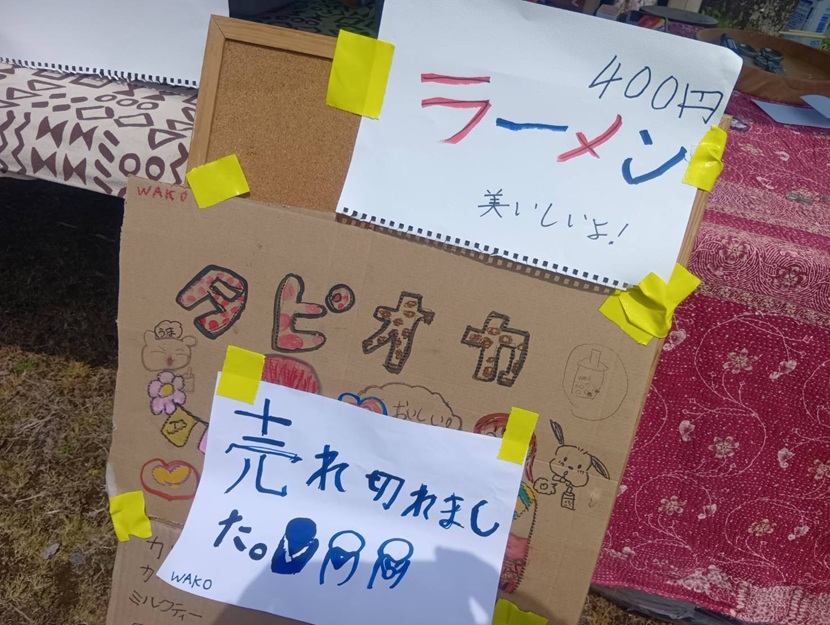 400円
ラーメン
美いしいよ!
WAKO
タピオカ
うま
おいしい!
売れ切れまし
た。
WAKO
カ
カ
ミルクティー